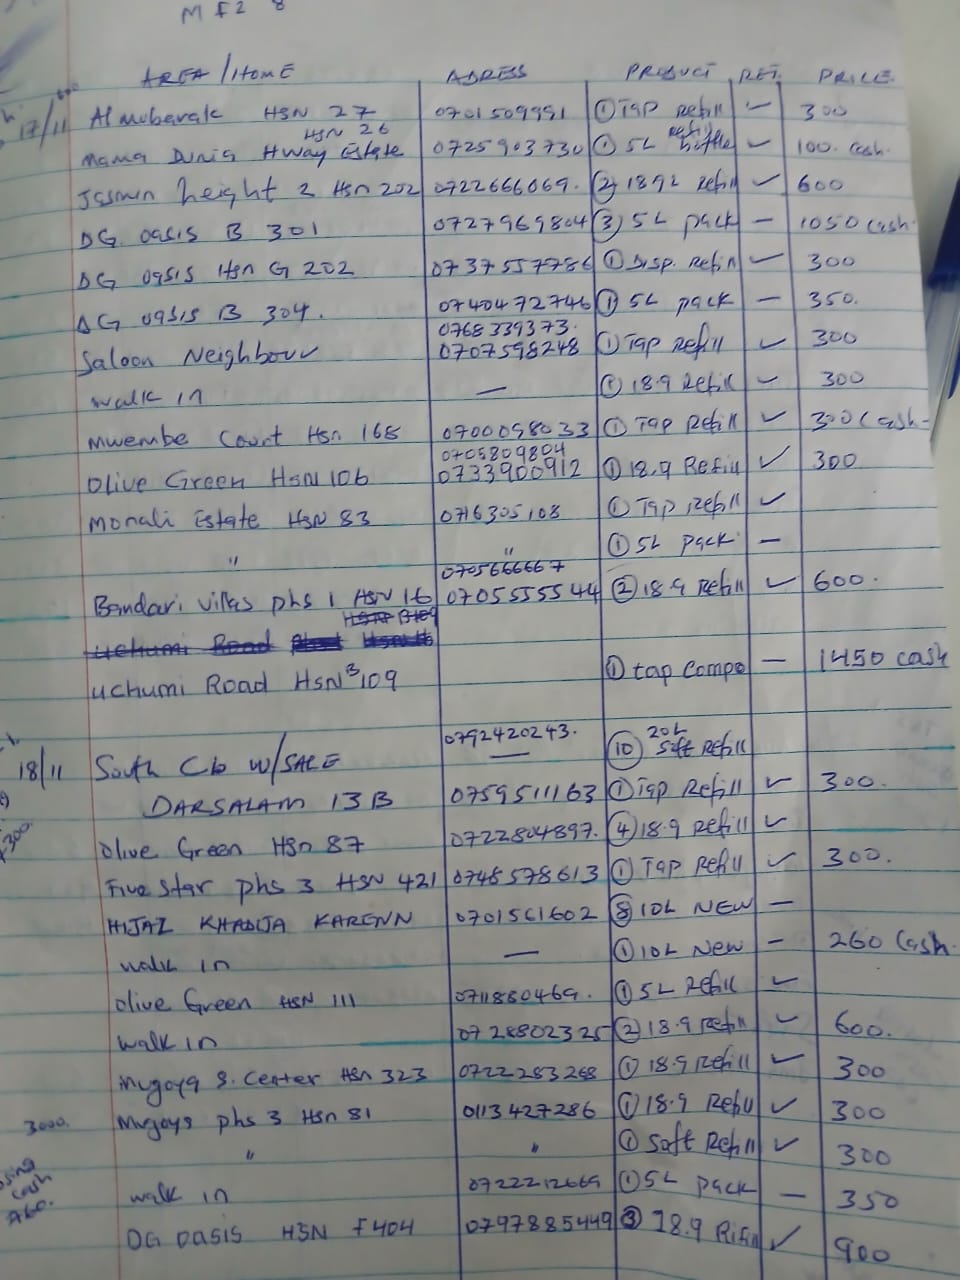 M F2 8
AREA/HOME ADRESS PRODUCT REF. PRICE.
17/11 Almubarak HSN 27 0701509991 ① Tap Refill ✓ 300
HSN 26 refill
Mama Dunia Hway Estate 0725903730 ① 5L bottle ✓ 100. Cash.
Jasmin height 2 Hsn 202 0722666069. ② 18.92 Refill ✓ 600
DG Oasis B 301 0727969804 ③ 5L pack — 1050 cash.
DG Oasis Hsn G 202 0737557786 ① Disp. Refill ✓ 300
DG Oasis B 304. 0740472746 ① 5L pack — 350.
0768339373.
Saloon Neighbour 0707598248 ① Tap Refill ✓ 300
walk in — ① 18.9 Refill ✓ 300
Mwembe Court Hsn 168 0700098033 ① Tap Refill ✓ 300 Cash-
0705809804
Olive Green HSN 106 0733900912 ① 18.9 Refill ✓ 300
Monali Estate HSN 83 0716305108 ① Tap Refill ✓
" " ① 5L pack —
0705666667
Bandari villas phs 1 HSN 16 0705555544 ② 18.9 Refill ✓ 600.
HSN B109
uchumi Road HSN
uchumi Road HSN B109 ① tap Compo — 1450 cash
0792420243. 20L
18/11 South Cb W/SALE — ⑩ Soft Refill
DARSALAM 13B 0759511163 ① Tap Refill ✓ 300.
300.
Olive Green HSn 87 0722804897. ④ 18.9 Refill ✓
Five Star phs 3 HSN 421 0748578613 ① Tap Refill ✓ 300.
HIJAZ KHADIJA KARENN 0701561602 ⑧ 10L NEW —
walk in — ① 10L New — 260 Cash.
Olive Green HSN 111 0711880469. ① 5L Refill ✓
walk in 0728802325 ② 18.9 Refill ✓ 600.
Mugoya S. Center Hsn 323 0722283268 ① 18.9 Refill ✓ 300
3000. Mugoya phs 3 Hsn 81 0113427286 ① 18.9 Refill ✓ 300
" " ① Soft Refill ✓ 300
cash
walk in 0722212669 ① 5L pack — 350
DG Oasis HSN F404 0797885449 ③ 18.9 Rifill ✓ 900